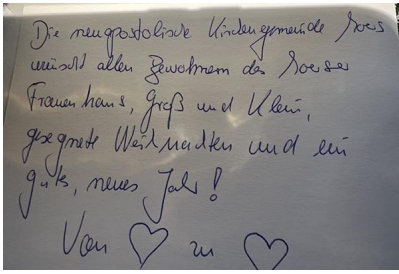 Die neuapostolische Kirchengemeinde Moers
wünscht allen Bewohnern des Moerser
Frauenhaus, Groß und Klein,
gesegnete Weihnachten und ein
gutes, neues Jahr!
Von ♡ zu ♡